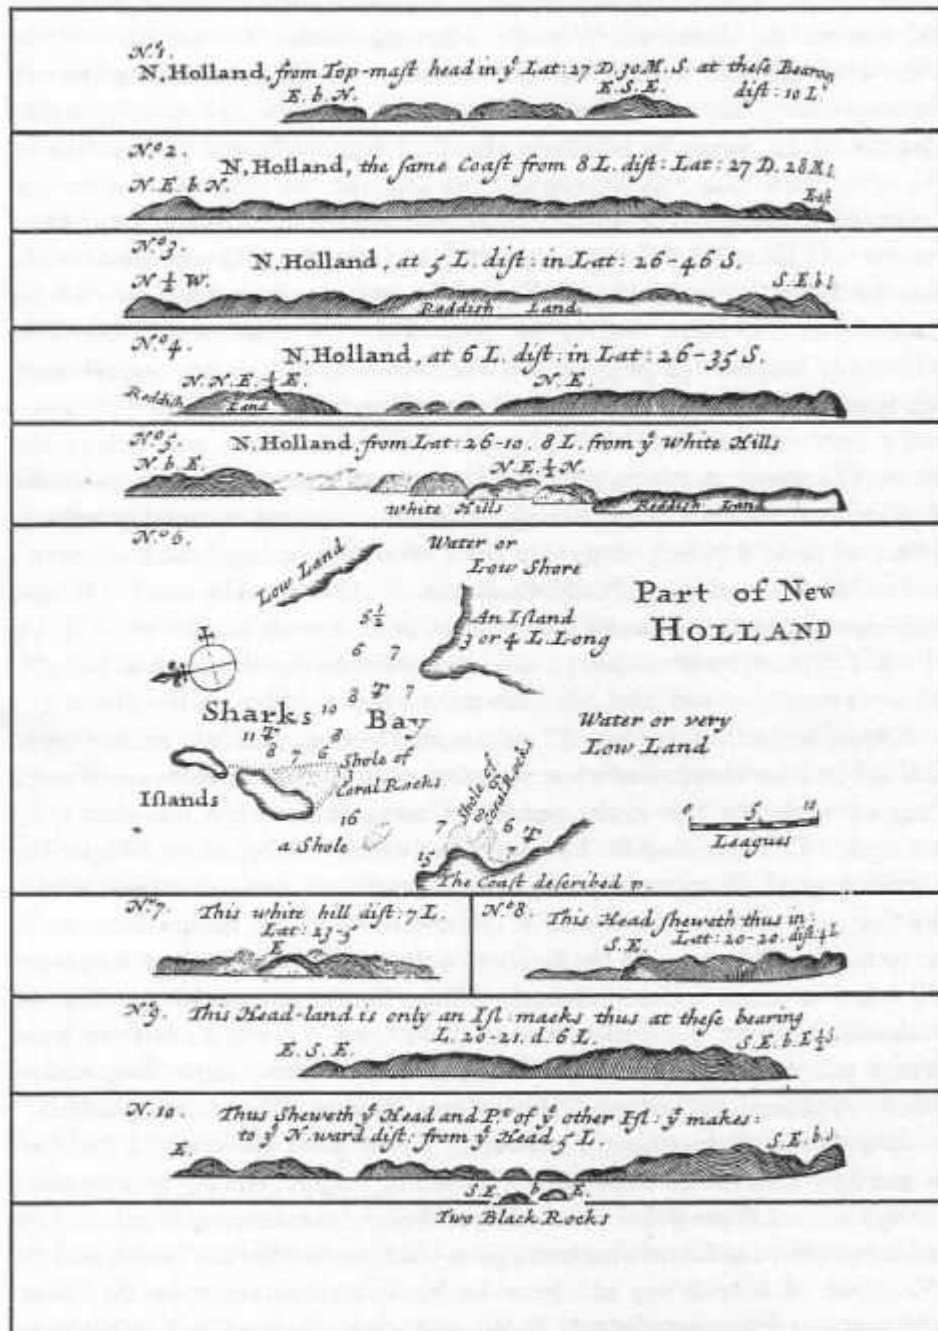 N.º 1.
N. Holland, from Top-maſt head in yᵉ Lat: 27 D. 30 M. S. at theſe Bearing
E. b. N. E. S. E. diſt: 10 L.
N.º 2.
N. Holland, the ſame Coaſt from 8 L. diſt: Lat: 27 D. 28 M.
N. E. b. N. Eaſt
N.º 3.
N. Holland, at 5 L. diſt: in Lat: 26-46 S.
N ½ W. S. E. b.
Reddiſh Land.
N.º 4.
N. Holland, at 6 L. diſt: in Lat: 26-35 S.
N. N. E. ½ E. N. E.
Reddiſh Land
N.º 5.
N. Holland, from Lat: 26-10. 8 L. from yᵉ White Hills
N. b. E. N. E. ½ N.
White Hills Reddiſh Land
N.º 6.
Low Land
Water or
Low Shore
Part of New
HOLLAND
An Iſland
3 or 4 L Long
5 ½
6 7
8 7
Sharks 10 Bay
11 8
Water or very
Low Land
Shole of
Coral Rocks
Iſlands
16
a Shole
Shole of
7 8 6
15
0 5 10
Leagues
The Coaſt deſcribed p.
N.º 7.
This white hill diſt: 7 L.
Lat: 23-3
E
N.º 8.
This Head ſheweth thus in
S. E. Lat: 20-20. diſt 4 L
N.º 9.
This Head-land is only an Iſl: maeks thus at theſe bearing
L. 20-21. d. 6 L.
E. S. E. S. E. b. E ½ S.
N. 10.
Thus ſheweth yᵉ Head and Pᵗ of yᵉ other Iſl: yᵉ makes:
to yᵉ N. ward diſt: from yᵉ Head 5 L.
E S. E. b. S.
S. E. b E.
Two Black Rocks